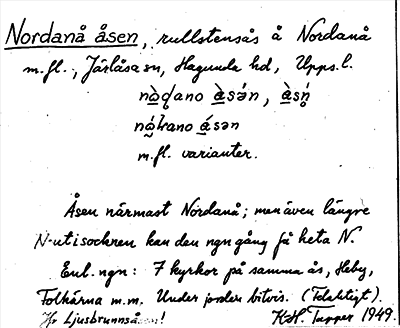 Nordanå åsen, rullstensås å Nordanå
m.fl., Järlåsa sn, Hagunda hd, Upps.l.
m.fl. varianter.
Åsen närmast Nordanå; men även längre
N-ut i socknen kan den ngn gång få heta N.
Enl. ngn: 7 kyrkor på samma ås, Heby,
Folkärna m.m. Under jorden bitvis. (Felaktigt).
Jfr Ljusbrunnsåsen! K.H. Tapper 1949.